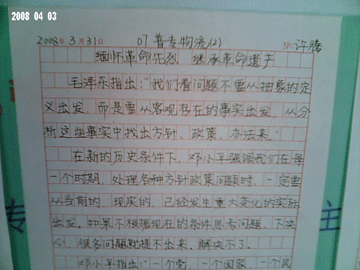 2008 04 03
2008年3月31日 07普专物流(2) 许腾
缅怀革命先烈 继承革命遗产
毛泽东指出:"我们看问题不要从抽象的定
义出发,而是要从客观存在的事实出发,从分
析这些事实中找出方针、政策、办法来。"
在新的历史条件下,邓小平强调我们在每
一个时期,处理各种方针政策问题时,一定要
从当前的、现实的、已经发生重大变化的实际
出发。如果不根据现在的条件思考问题、下决
心,很多问题就提不出来、解决不了。
邓小平指出:"一个党,一个国家,一个民
专